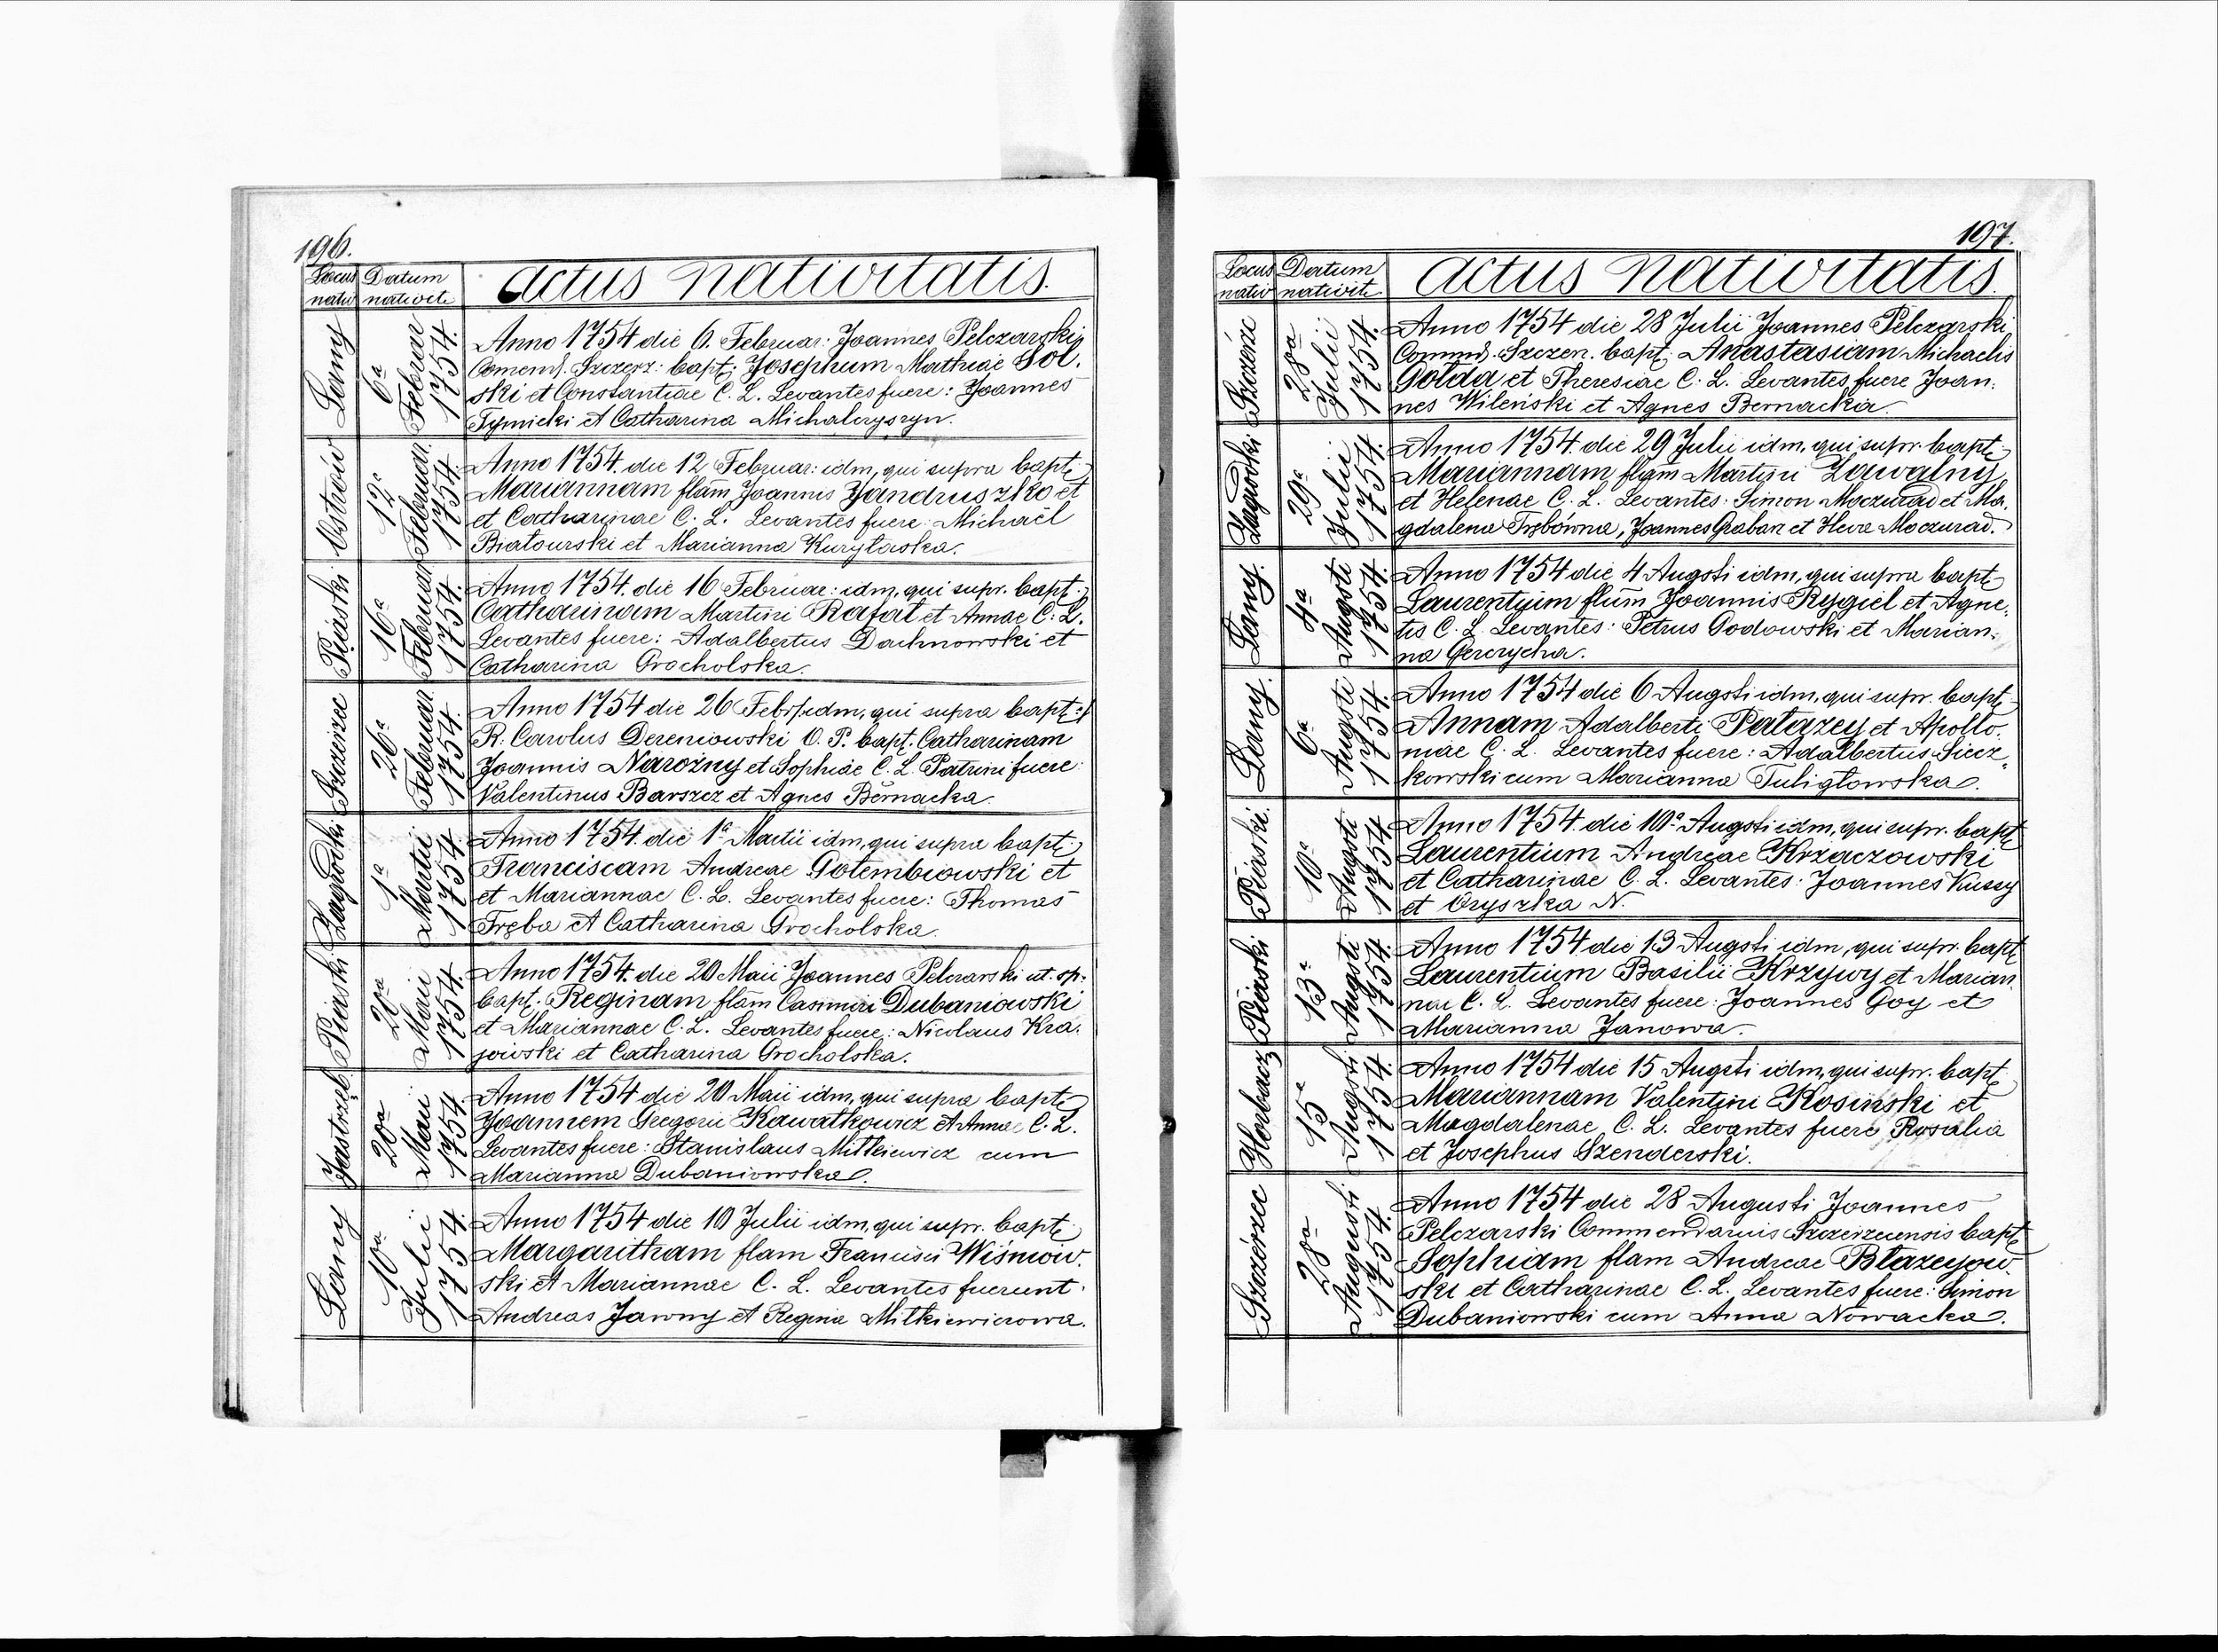 196.
Locus nativ
Datum nativit.
Actus nativitatis.
Łany
6a Februar 1754.
Anno 1754 die 6. Februar: Joannes Pelczarski,
Comend. Szczerz: bapt: Josephum Mathiae Sol.
ski et Constantiae C. L. Levantes fuere: Joannes
Tymicki et Catharina Michalczyszyn.
Ostrów
12a Februar. 1754.
Anno 1754. die 12 Februar: idm, qui supra bapt:
Mariannam flam Joannis Jandruszko et
et Catharinae C. L. Levantes fuere: Michaël
Białourski et Marianna Kuryłaska.
Piaski
16a Februar 1754.
Anno 1754. die 16 Februar: idm, qui supr. bapt:
Catharinam Martini Rafał et Annae C. L.
Levantes fuere: Adalbertus Dachnowski et
Catharina Grocholska.
Szczerzec
26a Februar 1754.
Anno 1754 die 26 Febr. idm, qui supra bapt:
R. Carolus Dereniowski O. P. bapt. Catharinam
Joannis Narożny et Sophiae C. L. Patrini fuere
Valentinus Barszcz et Agnes Bernacka.
Zagrodki
1a Martii 1754.
Anno 1754. die 1a Martii idm, qui supra bapt:
Franciscam Andreae Gołembiowski et
et Mariannae C. L. Levantes fuere: Thomas
Tręba et Catharina Grocholska.
Piaski
20a Maii 1754.
Anno 1754. die 20 Maii Joannes Pelczarski ut sp.
bapt. Reginam flam Casimiri Dubaniowski
et Mariannae C. L. Levantes fuere: Nicolaus Kra.
jowski et Catharina Grocholska.
Jastrzęb.
20a Maii 1754
Anno 1754 die 20 Maii idm, qui supra bapt:
Joannem Gregorii Kawałkowicz et Annae C. L.
Levantes fuere: Stanislaus Mitkiewicz cum
Marianna Dubaniowska.
Łany
10a Julii 1754.
Anno 1754 die 10 Julii idm, qui supr. bapt:
Margaritham flam Francisci Wiśniow.
ski et Mariannae C. L. Levantes fuerunt.
Andreas Jawny et Regina Mitkiewiczowa.
197.
Locus nativ
Datum nativit.
Actus Nativitatis.
Szczerze
28a Julii 1754.
Anno 1754 die 28 Julii Joannes Pelczarski,
Commd. Szczen. bapt. Anastasiam Michaelis
Gołda et Theresiae C. L. Levantes fuere Joan.
nes Wileński et Agnes Bernacka.
Zagrodki
29a Julii 1754.
Anno 1754. die 29 Julii idm, qui supr. bapt:
Mariannam flam Martini Zawalny
et Helenae C. L. Levantes: Simon Moczurad et Ma.
gdalena Trębowna, Joannes Grabarz et Heva Moczurad.
Łany.
4a Augsti 1754.
Anno 1754 die 4 Augsti idm, qui supra bapt:
Laurentium flum Joannis Rygiel et Agne.
tis C. L. Levantes: Petrus Godowski et Marian.
na Gerczycha.
Łany.
6a Augsti 1754.
Anno 1754 die 6 Augsti idm, qui supr. bapt:
Annam Adalberti Pałazey et Apollo.
niae C. L. Levantes fuere: Adalbertus Siecz.
kowski cum Marianna Tuligłowska.
Piaski
10a Augsti 1754
Anno 1754. die 10a Augsti idm, qui supr. bapt:
Laurentium Andreae Krzaczowski
et Catharinae C. L. Levantes: Joannes Kussy
et Oryszka N.
Piaski
13a Augsti 1754
Anno 1754 die 13 Augsti idm, qui supr. bapt:
Laurentium Basilii Krzywy et Marian.
nae C. L. Levantes fuere: Joannes Goy et
Marianna Janowa.
Horbacz
15a Augsti 1754
Anno 1754 die 15 Augsti idm, qui supr. bapt:
Mariannam Valentini Kosiński et
Magdalenae C. L. Levantes fuere Rosalia
et Josephus Szenderski.
Szczérzec
28a Augusti 1754.
Anno 1754 die 28 Augusti Joannes
Pelczarski Commendarius Szczerzecensis bapt:
Sophiam flam Andreae Błazeyow.
ski et Catharinae C. L. Levantes fuere: Simon
Dubaniowski cum Anna Nowacka.